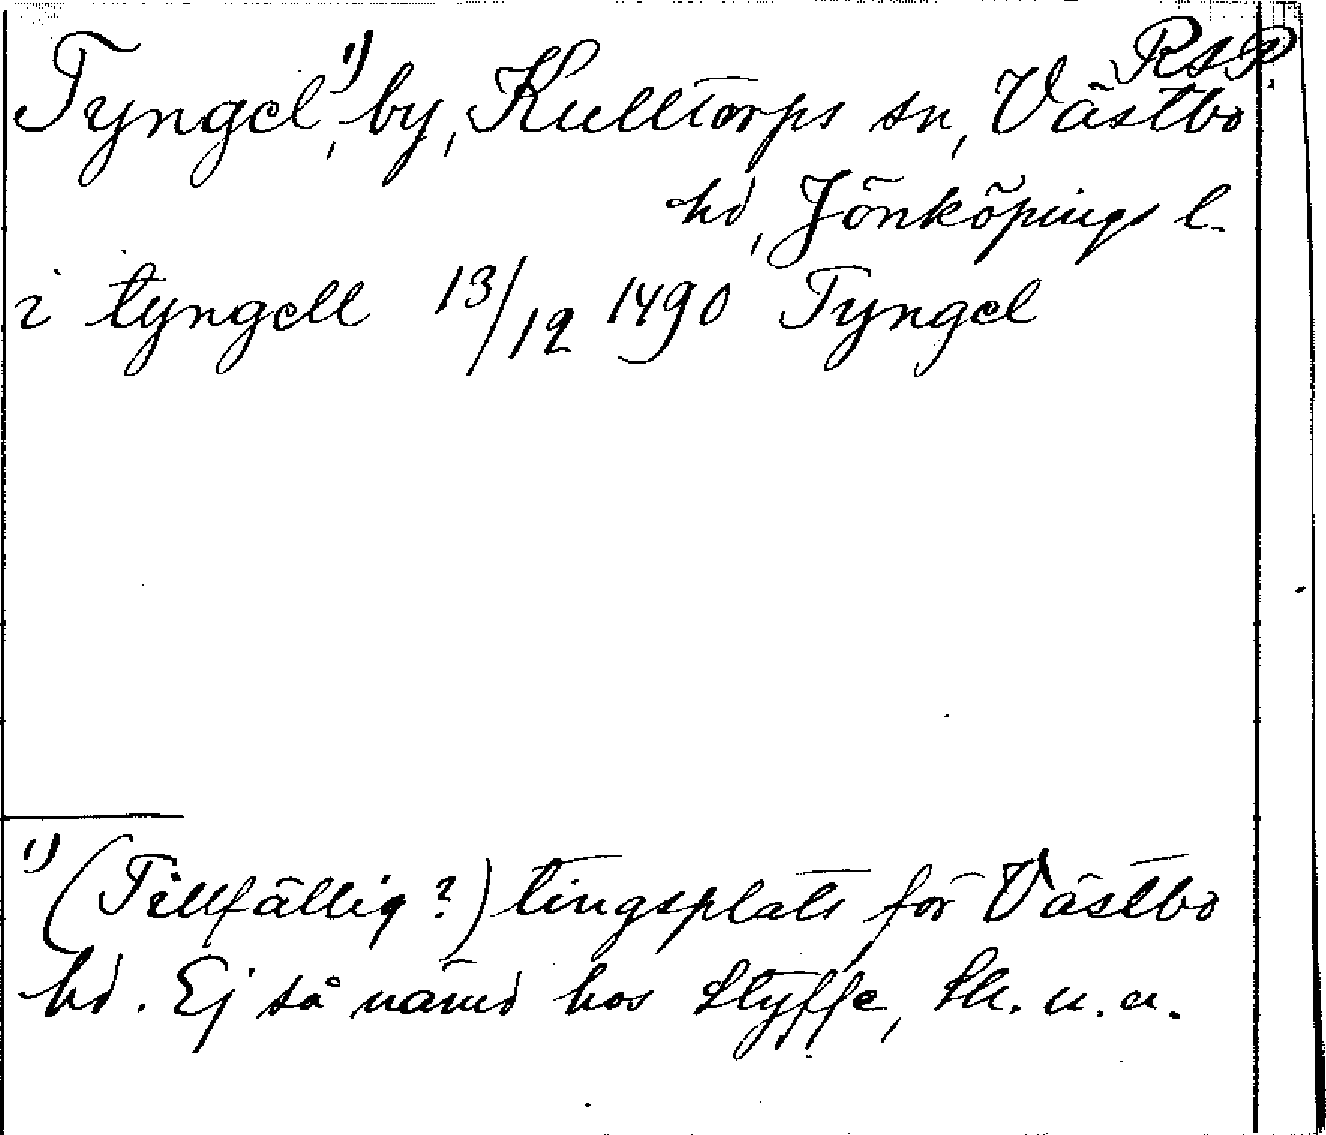 RAP.
Tyngel,¹⁾ by, Kulltorps sn, Västbo
hd, Jönköpings l.
i tyngell 13/12 1490 Tyngel
¹⁾ (Tillfällig?) tingsplats för Västbo
hd. Ej så nämd hos Styffe, Sk. u. a.